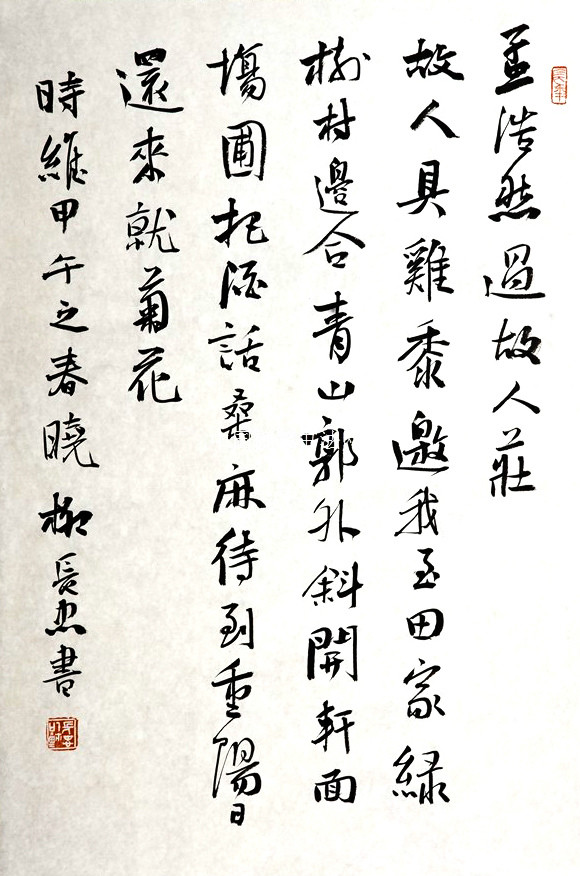 孟浩然過故人莊
故人具雞黍邀我至田家綠
樹村邊合青山郭外斜開軒面
場圃把酒話桑麻待到重陽日
還來就菊花
時維甲午之春曉柳長忠書